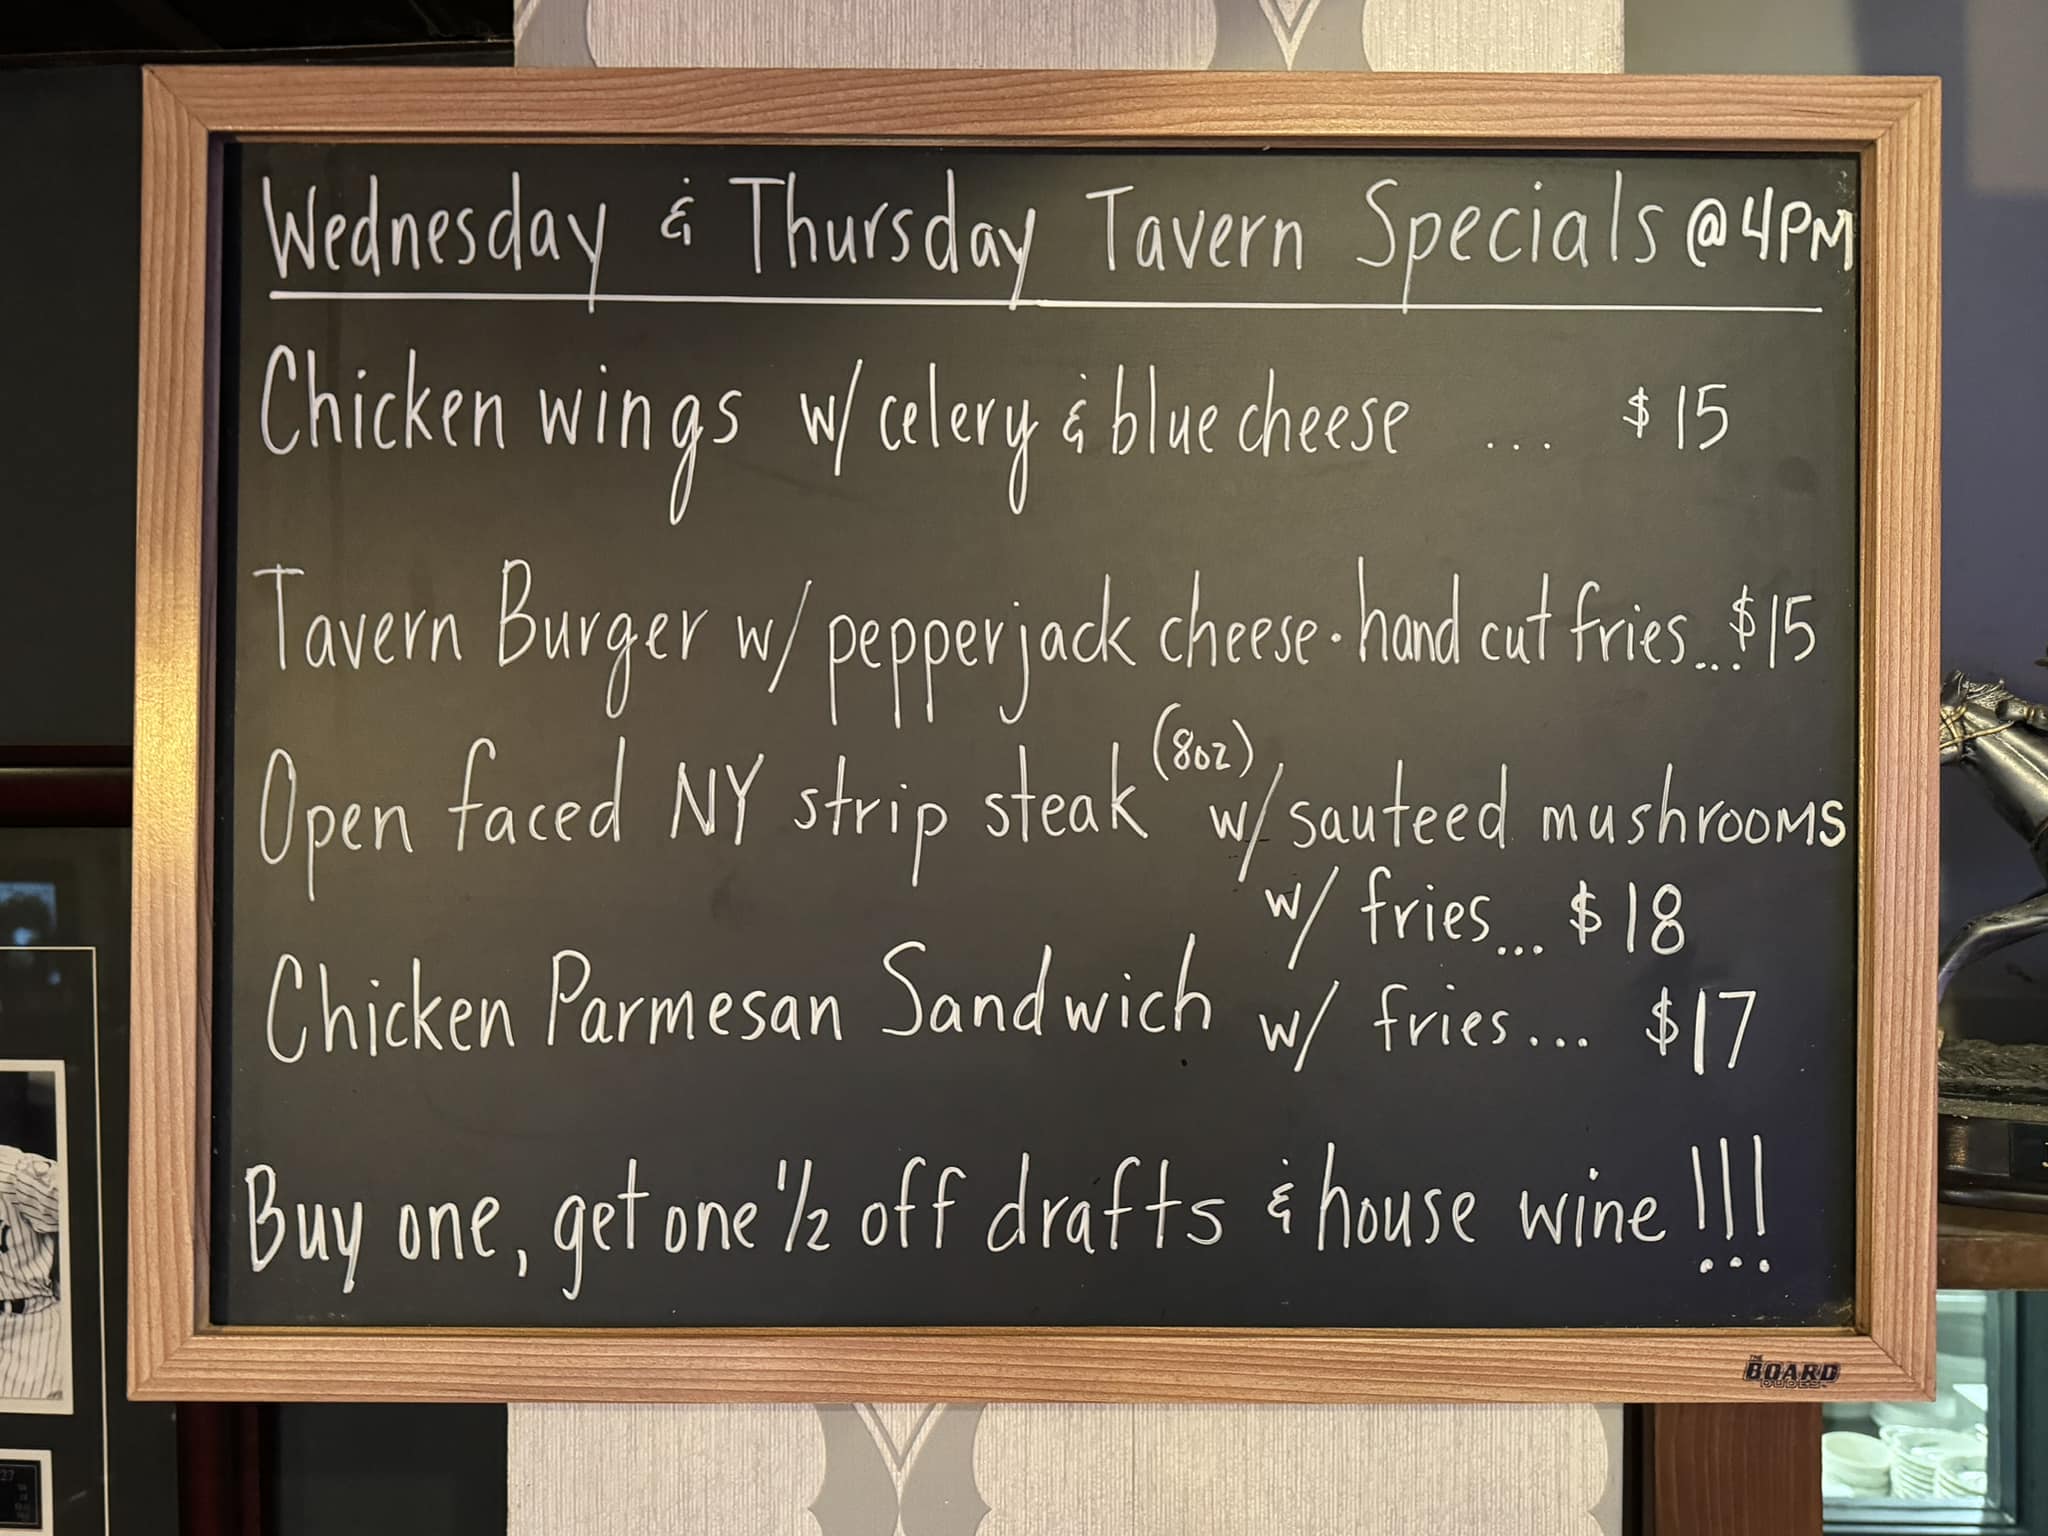 Wednesday & Thursday Tavern Specials @ 4PM
Chicken wings w/ celery & blue cheese ... $15
Tavern Burger w/ pepperjack cheese · hand cut fries... $15
Open faced NY strip steak (8oz) w/ sauteed mushrooms
w/ fries... $18
Chicken Parmesan Sandwich w/ fries... $17
Buy one, get one 1/2 off drafts & house wine!!!
THE
BOARD
DUDES